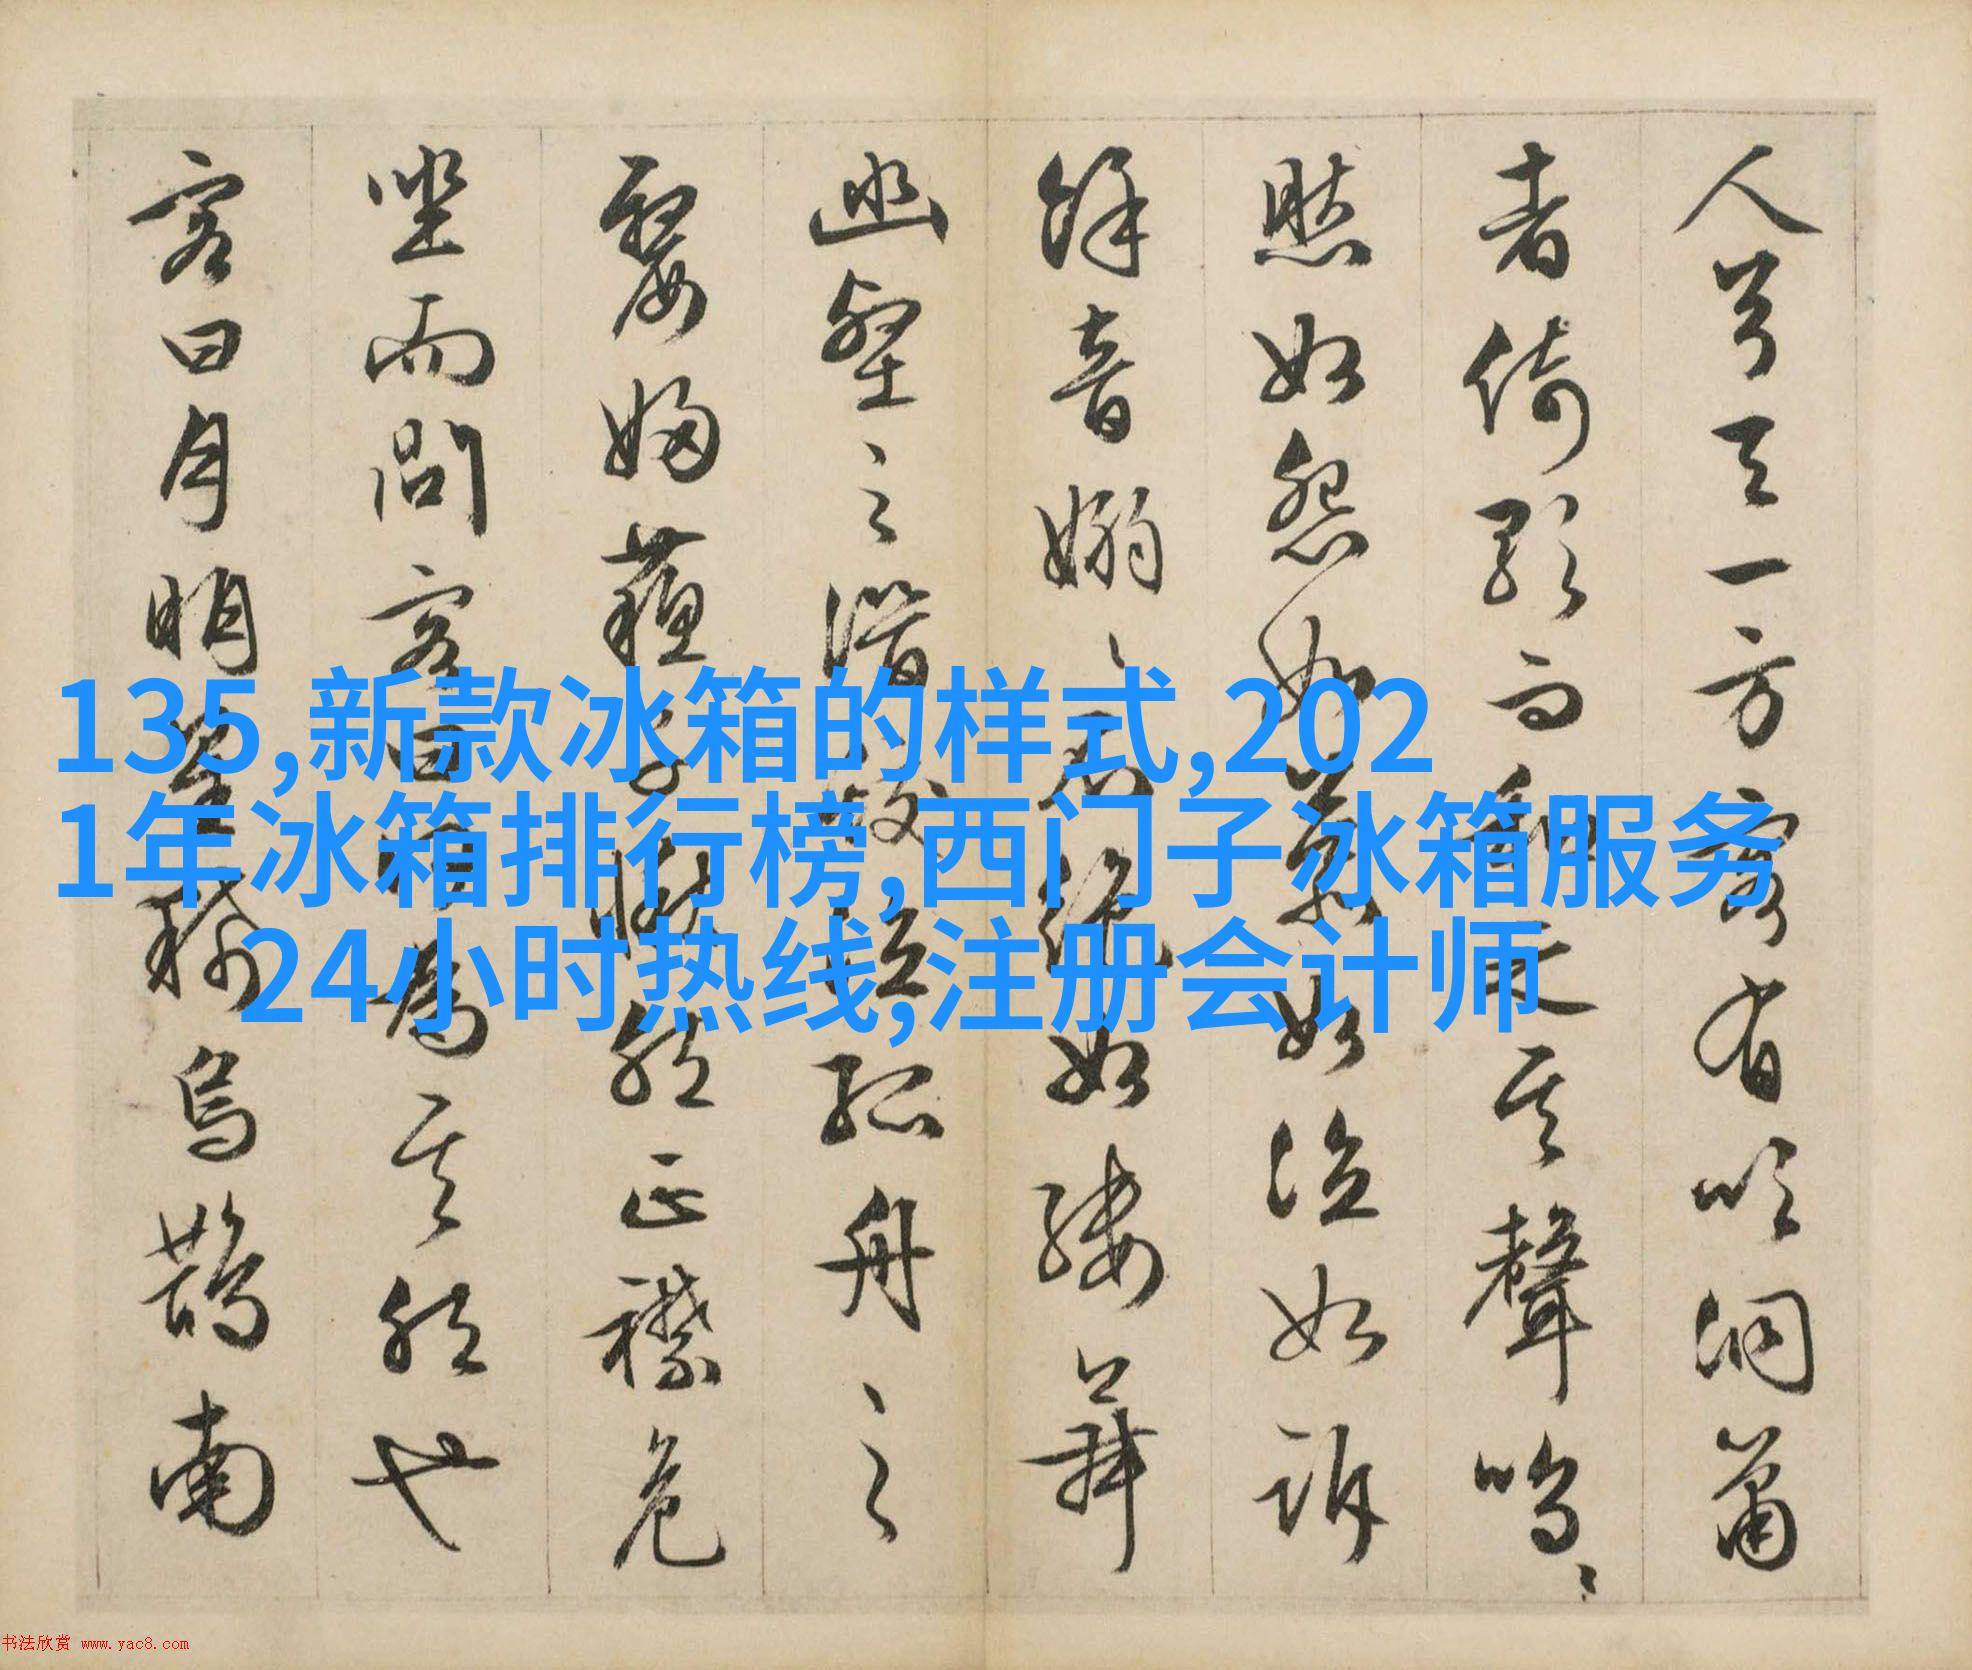 人兮天一方客有吹洞萧
者倚歌而和之其聲嗚〻
然如怨如慕如泣如訴
餘音嫋〻不絕如縷舞
幽壑之潛蛟泣孤舟之〻
嫠婦蘇子愀然正襟危
坐而問客曰何為其然也
客曰月明星稀烏鵲南
135,新款冰箱的样式,202
1年冰箱排行榜,西门子冰箱服务
24小时热线,注册会计师
书法欣赏 www.yac8.com